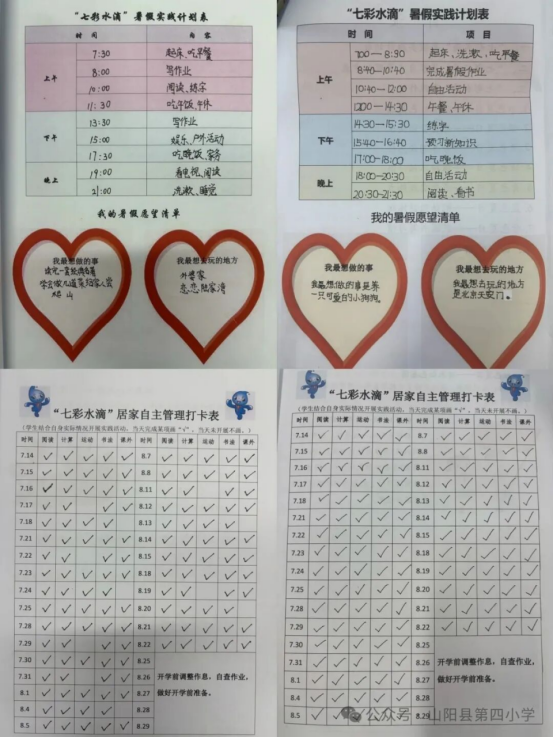 “七彩水滴”暑假实践计划表
时 间 内 容
上午 7:30 起床、吃早餐
8:00 写作业
10:00 阅读、练字
11:30 吃午饭、午休
下午 13:30 写作业
15:00 娱乐、户外活动
17:30 吃晚饭、家务
晚上 19:00 看电视、阅读
21:00 洗漱、睡觉
我的暑假愿望清单
我最想做的事
学会做几道菜给家人尝
爬山
我最想去玩的地方
外婆家
“七彩水滴”暑假实践计划表
时 间 项 目
上午 7:00—8:30 起床、洗漱、吃早餐
8:40—10:40 完成暑假作业
10:40—12:00 自由活动
12:00—14:30 午餐、午休
下午 14:30—15:30 练字
15:40—16:40 预习新知识
17:00—18:00 吃晚饭
晚上 18:00—20:30 自由活动
20:30—21:30 阅读、看书
我的暑假愿望清单
我最想做的事
我最想做的事是养
一只可爱的小狗狗。
我最想去玩的地方
我最想去玩的地方
是北京天安门。
“七彩水滴”居家自主管理打卡表
(学生结合自身实际情况开展实践活动，当天完成某项画“√”，当天未开展不画。)
时间 阅读 计算 运动 书法 课外 时间 阅读 计算 运动 书法 课外
7.14 8.7
7.15 8.8
7.16 8.11
7.17 8.12
7.18 8.13
7.21 8.14
7.22 8.15
7.23 8.18
7.24 8.19
7.25 8.20
7.28 8.21
7.29 8.22
7.30 8.25
7.31 8.26 开学前调整作息，自查作业，
8.1 8.27 做好开学前准备。
8.4 8.28
8.5 8.29
“七彩水滴”居家自主管理打卡表
(学生结合自身实际情况开展实践活动，当天完成某项画“√”，当天未开展不画。)
时间 阅读 计算 运动 书法 课外 时间 阅读 计算 运动 书法 课外
7.14 8.7
7.15 8.8
7.16 8.11
7.17 8.12
7.18 8.13
7.21 8.14
7.22 8.15
7.23 8.18
7.24 8.19
7.25 8.20
7.28 8.21
7.29 8.22
7.30 8.25
7.31 8.26 开学前调整作息，自查作业，
8.1 8.27 做好开学前准备。
8.4 8.28
8.5 8.29
公众号·山阳县第四小学